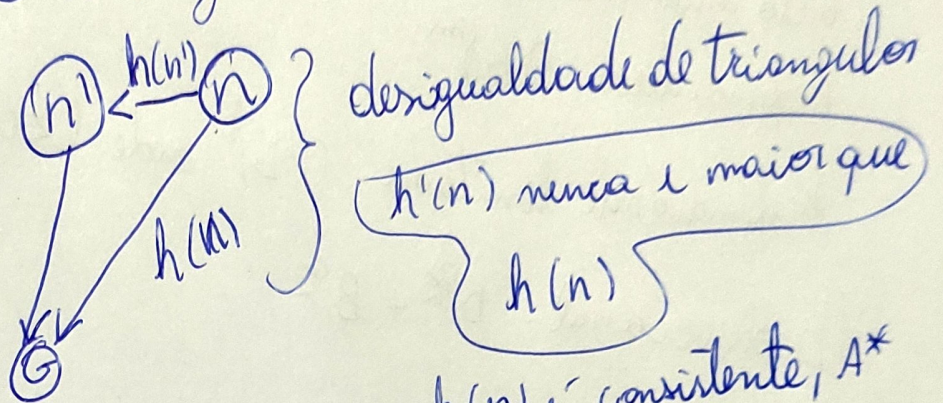 h(n')
n'
n
desigualdade de triangulos
h'(n) nunca e maior que
h(n)
h(n)
G
consistente, A*